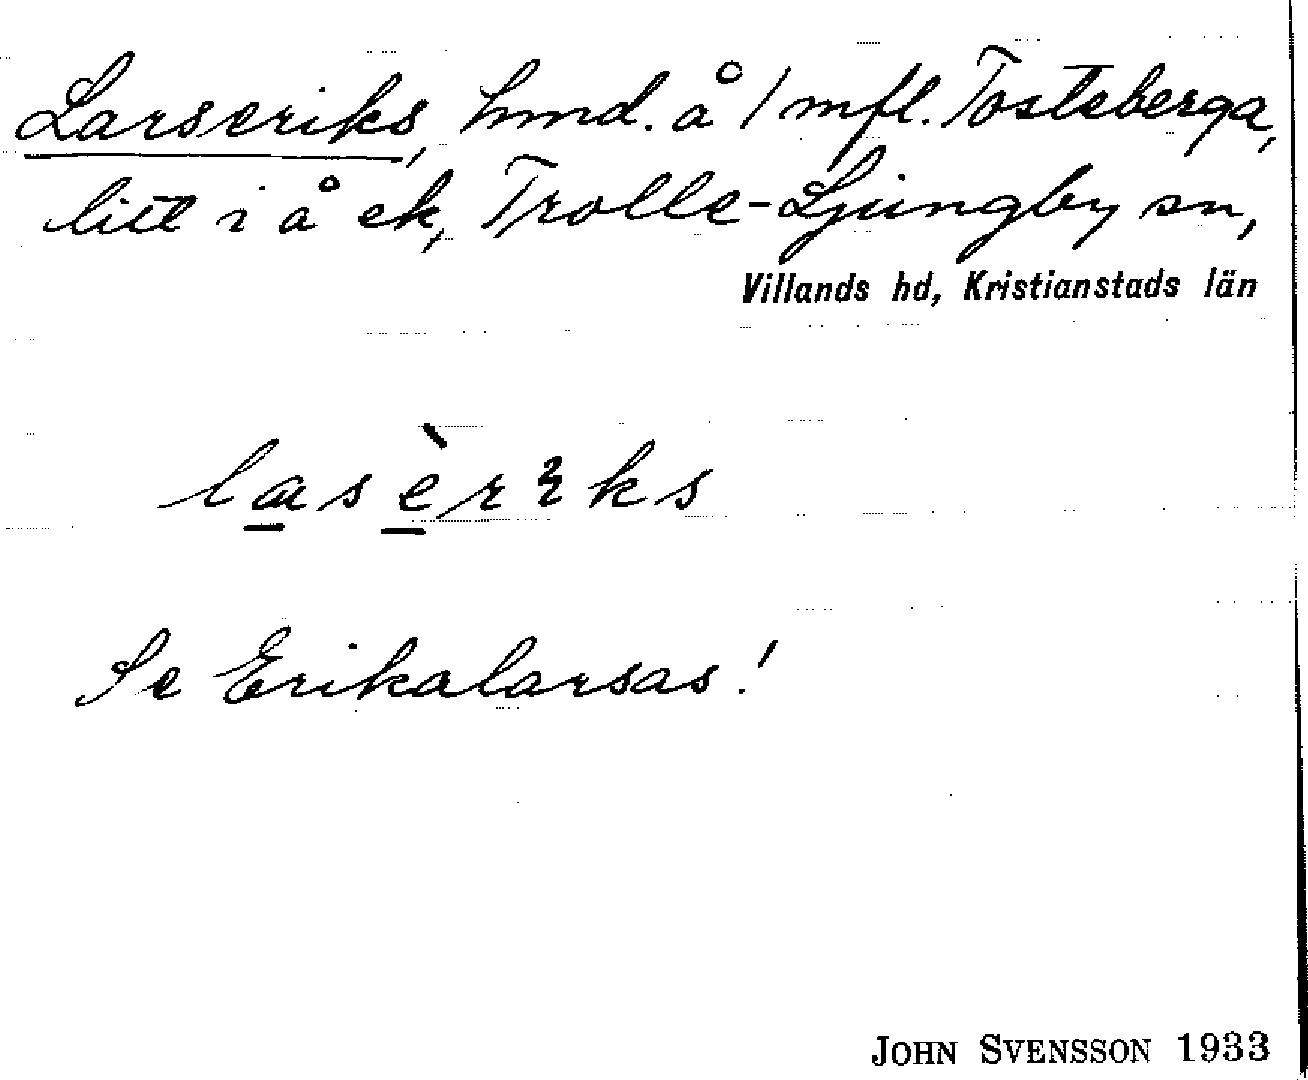 Larseriks, hmd. å 1 mfl. Tosteberga,
litt i å ek, Trolle-Ljungby sn,
Villands hd, Kristianstads län
Se Erikalarsas!
JOHN SVENSSON 1933